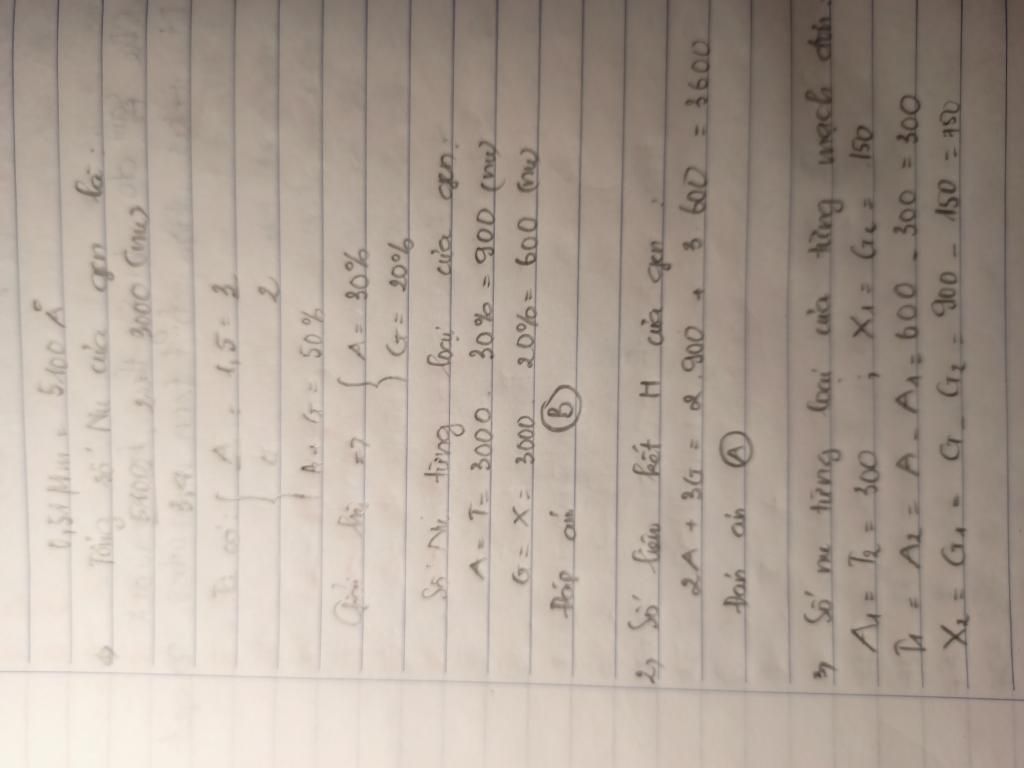 0,51 Mm = 5100 Å
1) Tổng số Nu của gen là:
= 3000 (nu)
3,4
Ta có { A = 1,5 = 3
G 2
A + G = 50%
=> { A = 30%
G = 20%
Số Nu từng loại của gen:
A = T = 3000 . 30% = 900 (nu)
G = X = 3000 20% = 600 (nu)
Đáp án B
2, Số liên kết H của gen.
2A + 3G = 2.900 + 3 600 = 3600
Đán án A
3, Số nu từng loại của từng mạch đơn.
A1 = T2 = 300 ; X1 = G2 = 150
T1 = A2 = A - A1 = 600 - 300 = 300
X2 = G1 = G - G2 = 900 - 150 = 750